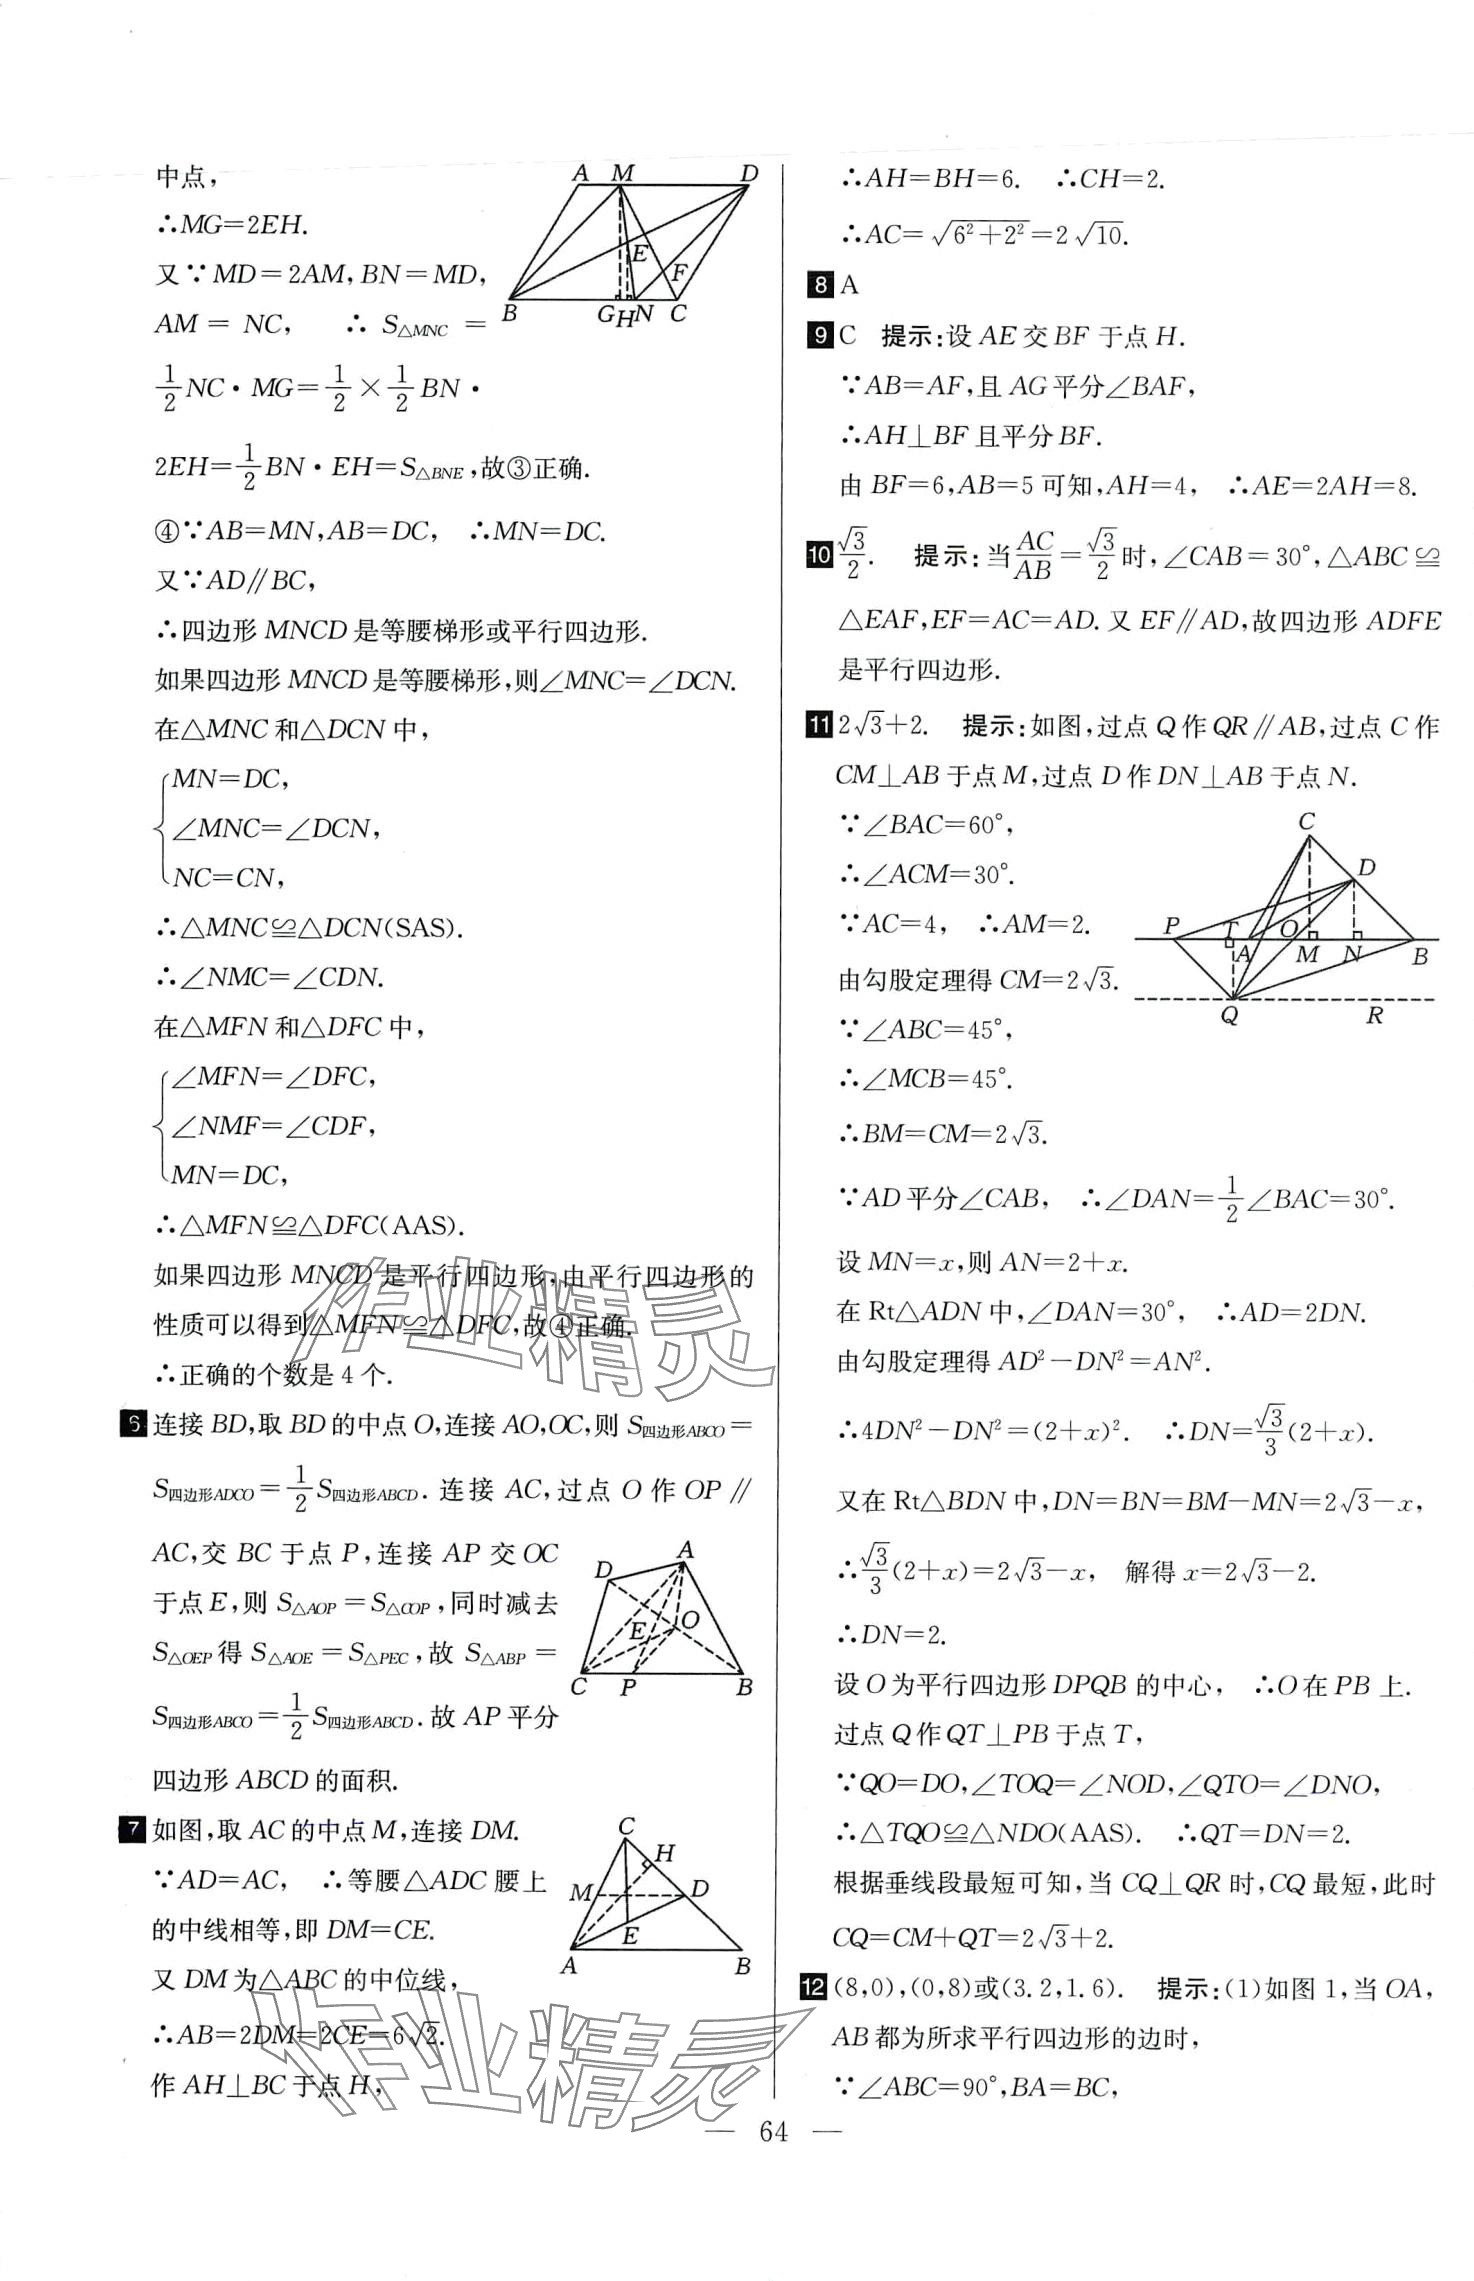 中点，
∴MG=2EH.
又∵MD=2AM,BN=MD,
AM = NC, ∴ S△MNC =
1/2 NC·MG=1/2×1/2 BN·
2EH=1/2 BN·EH=S△BNE,故③正确.
④∵AB=MN,AB=DC, ∴MN=DC.
又∵AD∥BC,
∴四边形 MNCD 是等腰梯形或平行四边形.
如果四边形 MNCD 是等腰梯形,则∠MNC=∠DCN.
在△MNC 和△DCN 中,
MN=DC,
∠MNC=∠DCN,
NC=CN,
∴△MNC≌△DCN(SAS).
∴∠NMC=∠CDN.
在△MFN 和△DFC 中,
∠MFN=∠DFC,
∠NMF=∠CDF,
MN=DC,
∴△MFN≌△DFC(AAS).
如果四边形 MNCD 是平行四边形,由平行四边形的
性质可以得到△MFN≌△DFC,故④正确.
∴正确的个数是 4 个.
6 连接 BD,取 BD 的中点 O,连接 AO,OC,则 S四边形ABCO=
S四边形ADCO=1/2 S四边形ABCD. 连接 AC,过点 O 作 OP∥
AC,交 BC 于点 P,连接 AP 交 OC
于点 E,则 S△AOP=S△COP,同时减去
S△OEP 得 S△AOE=S△PEC,故 S△ABP=
S四边形ABCO=1/2 S四边形ABCD. 故 AP 平分
四边形 ABCD 的面积.
7 如图,取 AC 的中点 M,连接 DM.
∵AD=AC, ∴等腰△ADC 腰上
的中线相等,即 DM=CE.
又 DM 为△ABC 的中位线,
∴AB=2DM=2CE=6√2.
作 AH⊥BC 于点 H,
A M D
E
F
B G H N C
A
D
E O
C P B
C
H
M D
E
A B
∴AH=BH=6. ∴CH=2.
∴AC=√(6²+2²)=2√10.
8 A
9 C 提示:设 AE 交 BF 于点 H.
∵AB=AF,且 AG 平分∠BAF,
∴AH⊥BF 且平分 BF.
由 BF=6,AB=5 可知,AH=4, ∴AE=2AH=8.
10 √3/2. 提示:当 AC/AB=√3/2 时,∠CAB=30°,△ABC≌
△EAF,EF=AC=AD. 又 EF∥AD,故四边形 ADFE
是平行四边形.
11 2√3+2. 提示:如图,过点 Q 作 QR∥AB,过点 C 作
CM⊥AB 于点 M,过点 D 作 DN⊥AB 于点 N.
∵∠BAC=60°,
∴∠ACM=30°.
∵AC=4, ∴AM=2.
由勾股定理得 CM=2√3.
∵∠ABC=45°,
∴∠MCB=45°.
∴BM=CM=2√3.
∵AD 平分∠CAB, ∴∠DAN=1/2∠BAC=30°.
设 MN=x,则 AN=2+x.
在 Rt△ADN 中,∠DAN=30°, ∴AD=2DN.
由勾股定理得 AD²-DN²=AN².
∴4DN²-DN²=(2+x)². ∴DN=√3/3(2+x).
又在 Rt△BDN 中,DN=BN=BM-MN=2√3-x,
∴√3/3(2+x)=2√3-x, 解得 x=2√3-2.
∴DN=2.
设 O 为平行四边形 DPQB 的中心, ∴O 在 PB 上.
过点 Q 作 QT⊥PB 于点 T,
∵QO=DO,∠TOQ=∠NOD,∠QTO=∠DNO,
∴△TQO≌△NDO(AAS). ∴QT=DN=2.
根据垂线段最短可知,当 CQ⊥QR 时,CQ 最短,此时
CQ=CM+QT=2√3+2.
12 (8,0),(0,8)或(3.2,1.6). 提示:(1)如图 1,当 OA,
AB 都为所求平行四边形的边时,
∵∠ABC=90°,BA=BC,
C
D
P T O
A M N B
Q R
作业精灵
作业精灵
— 64 —